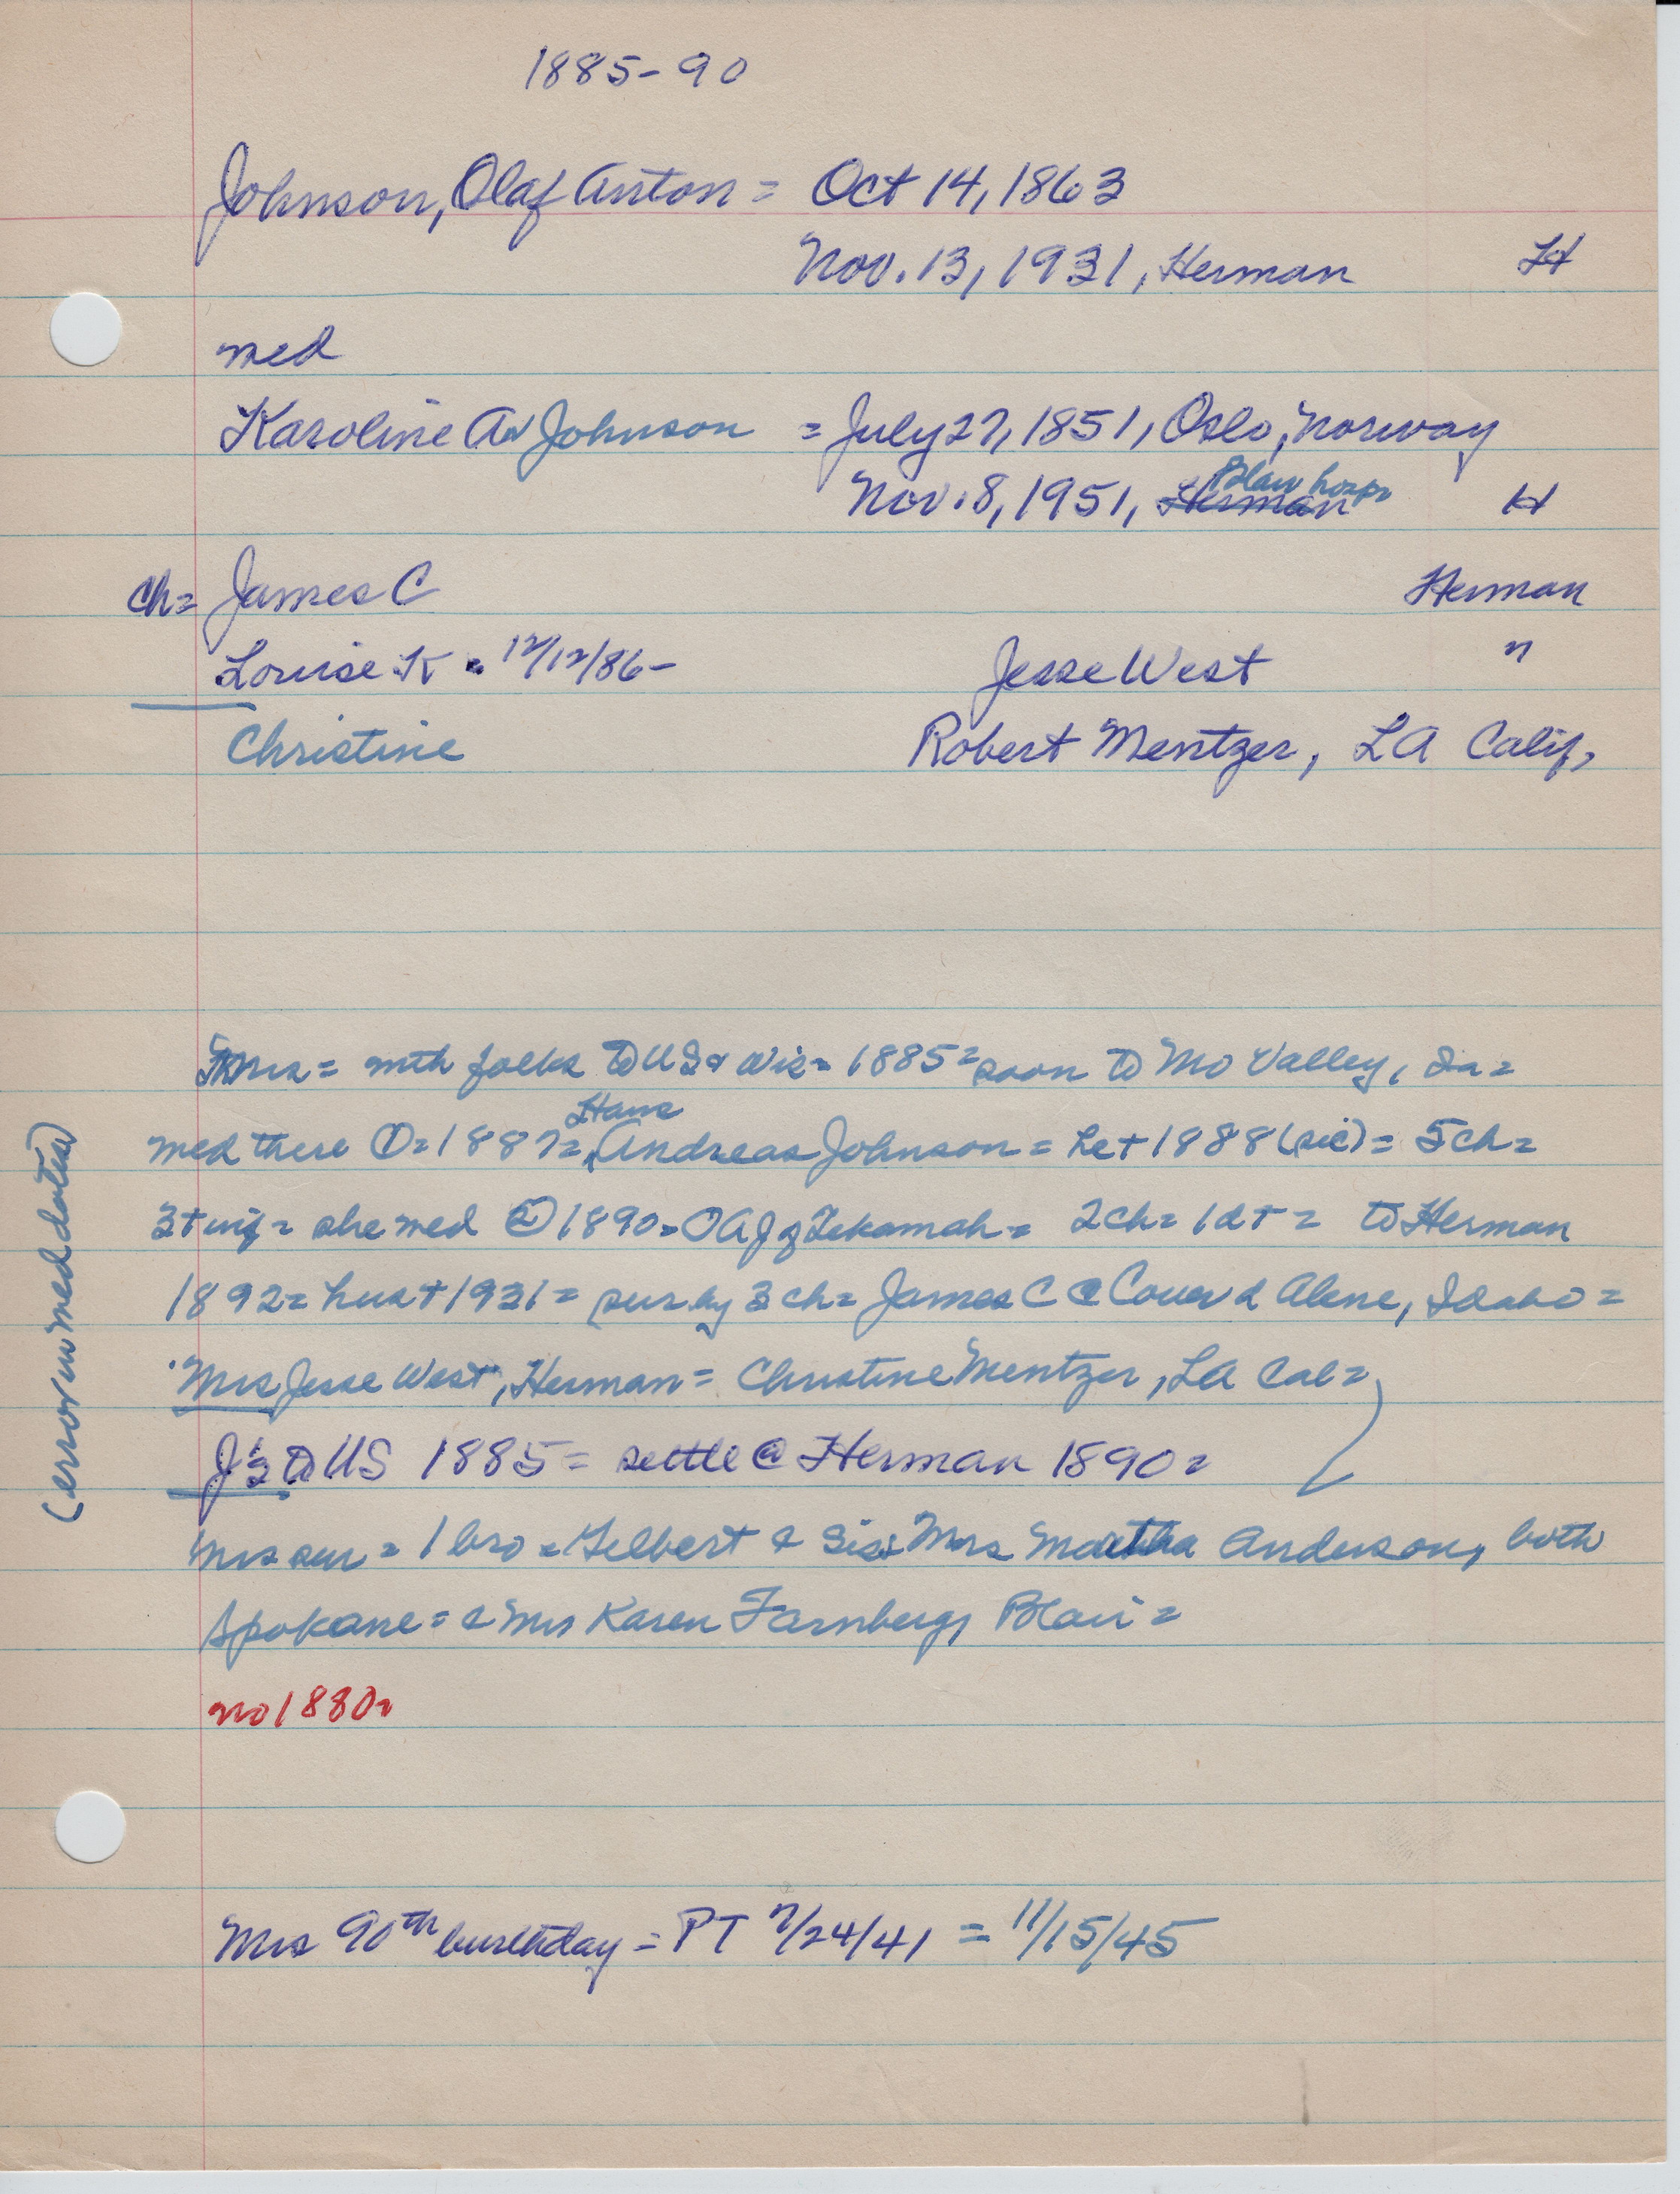 1885-90
Johnson, Olaf Anton = Oct 14, 1863
Nov. 13, 1931, Herman H
med
Karoline A Johnson = July 27, 1851, Oslo, Norway
Blair hosp
Nov. 8, 1951, Herman H
ch= James C Herman
Louise K = 12/12/86- Jesse West "
Christine Robert Mentzer, LA Calif,
Mrs = with folks to US & Wis = 1885 = soon to Mo Valley, Ia =
Hans
med there ① = 1887 = Andreas Johnson = he + 1888 (sic) = 5 ch =
3 + inf = she med ② 1890 = OAJ of Tekamah = 2 ch = 1 d + = to Herman
1892 = hus + 1931 = sur by 3 ch = James C @ Couer d Alene, Idaho =
Mrs Jesse West, Herman = Christine Mentzer, LA Cal =
J's to US 1885 = settle @ Herman 1890 =
Mrs sur = 1 bro = Gilbert & Sis = Mrs Martha Anderson, both
Spokane = & Mrs Karen Farnberg, Blair =
(error in med dates)
no 1880 =
Mrs 90th birthday = PT 7/24/41 = 11/15/45